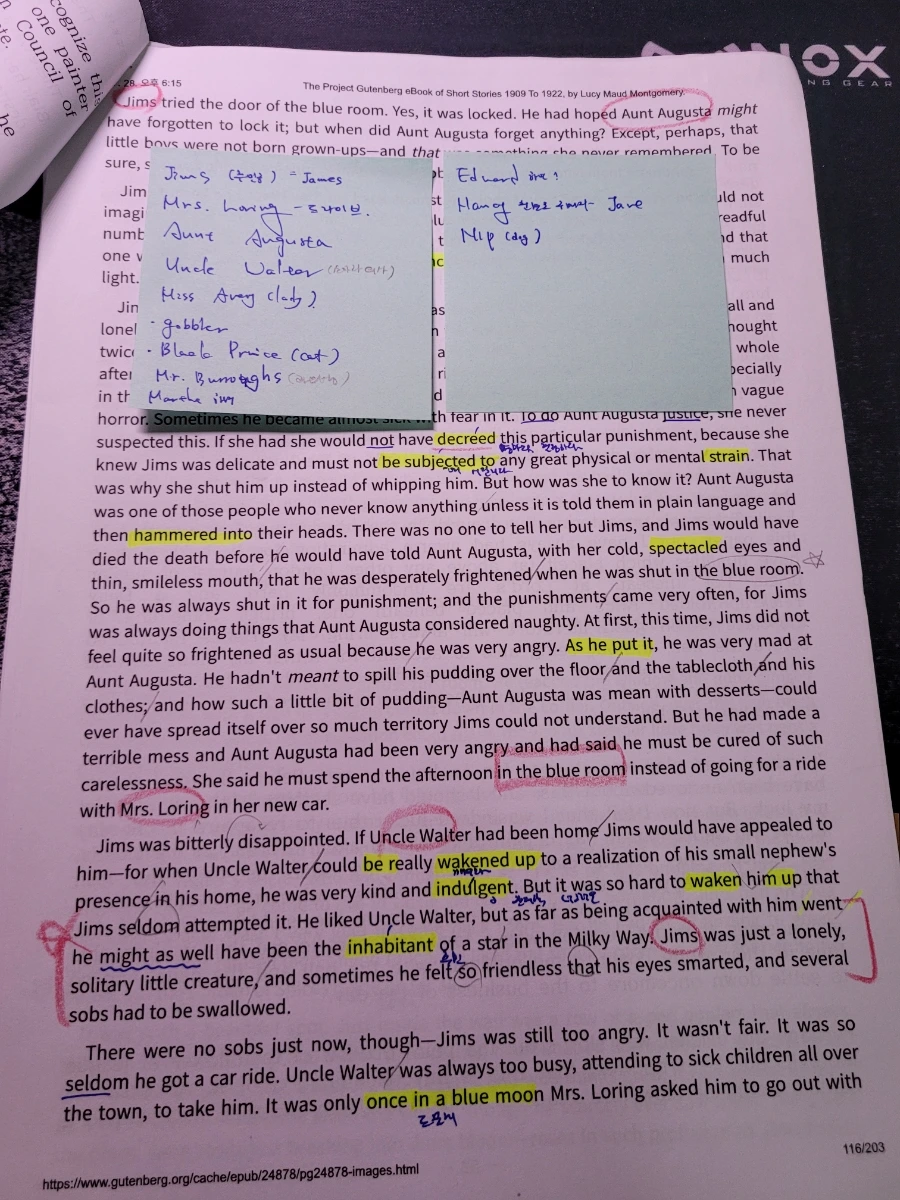 cognize this
one painter
Council of
te.
he
NOX
NG GEAR
28. 오후 6:15
The Project Gutenberg eBook of Short Stories 1909 To 1922, by Lucy Maud Montgomery.
Jims tried the door of the blue room. Yes, it was locked. He had hoped Aunt Augusta might
have forgotten to lock it; but when did Aunt Augusta forget anything? Except, perhaps, that
little boys were not born grown-ups—and that was something she never remembered. To be
sure, s
Jim
uld not
imagi
readful
numb
nd that
one w
much
light.
Jims = James
Mrs. Loring - 드라이브.
Aunt Augusta
Uncle Walter
Miss Avery (lady)
· gobbler
· Black Prince (cat)
Mr. Burroughs
Martha
Edward
Nancy Jane
Nip (dog)
Jin
all and
lonel
hought
twice
whole
after
pecially
in th
vague
horror. Sometimes he became almost sick with fear in it. To do Aunt Augusta justice, she never
suspected this. If she had she would not have decreed this particular punishment, because she
knew Jims was delicate and must not be subjected to any great physical or mental strain. That
was why she shut him up instead of whipping him. But how was she to know it? Aunt Augusta
was one of those people who never know anything unless it is told them in plain language and
then hammered into their heads. There was no one to tell her but Jims, and Jims would have
died the death before he would have told Aunt Augusta, with her cold, spectacled eyes and
thin, smileless mouth, that he was desperately frightened when he was shut in the blue room.
So he was always shut in it for punishment; and the punishments came very often, for Jims
was always doing things that Aunt Augusta considered naughty. At first, this time, Jims did not
feel quite so frightened as usual because he was very angry. As he put it, he was very mad at
Aunt Augusta. He hadn't meant to spill his pudding over the floor and the tablecloth and his
clothes; and how such a little bit of pudding—Aunt Augusta was mean with desserts—could
ever have spread itself over so much territory Jims could not understand. But he had made a
terrible mess and Aunt Augusta had been very angry and had said he must be cured of such
carelessness. She said he must spend the afternoon in the blue room instead of going for a ride
with Mrs. Loring in her new car.
Jims was bitterly disappointed. If Uncle Walter had been home Jims would have appealed to
him—for when Uncle Walter could be really wakened up to a realization of his small nephew's
presence in his home, he was very kind and indulgent. But it was so hard to waken him up that
Jims seldom attempted it. He liked Uncle Walter, but as far as being acquainted with him went
he might as well have been the inhabitant of a star in the Milky Way. Jims was just a lonely,
solitary little creature, and sometimes he felt so friendless that his eyes smarted, and several
sobs had to be swallowed.
There were no sobs just now, though—Jims was still too angry. It wasn't fair. It was so
seldom he got a car ride. Uncle Walter was always too busy, attending to sick children all over
the town, to take him. It was only once in a blue moon Mrs. Loring asked him to go out with
드물게
116/203
https://www.gutenberg.org/cache/epub/24878/pg24878-images.html